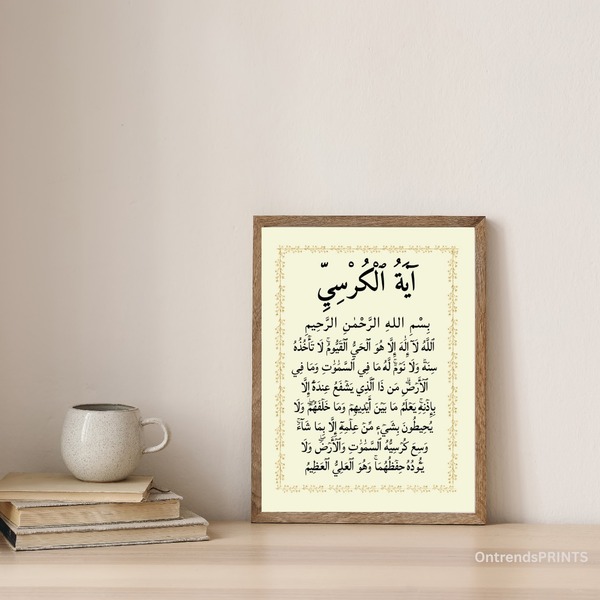 آيَةُ ٱلْكُرْسِيِّ
بِسْمِ اللهِ الرَّحْمٰنِ الرَّحِيمِ
ٱللَّهُ لَآ إِلَٰهَ إِلَّا هُوَ ٱلْحَيُّ ٱلْقَيُّومُ لَا تَأْخُذُهُ
سِنَةٌ وَلَا نَوْمٌ لَّهُ مَا فِي ٱلسَّمَٰوَٰتِ وَمَا فِي
ٱلْأَرْضِ مَن ذَا ٱلَّذِي يَشْفَعُ عِندَهُ إِلَّا
بِإِذْنِهِ يَعْلَمُ مَا بَيْنَ أَيْدِيهِمْ وَمَا خَلْفَهُمْ وَلَا
يُحِيطُونَ بِشَيْءٍ مِّنْ عِلْمِهِ إِلَّا بِمَا شَآءَ
وَسِعَ كُرْسِيُّهُ ٱلسَّمَٰوَٰتِ وَٱلْأَرْضَ وَلَا
يَـُٔودُهُ حِفْظُهُمَا وَهُوَ ٱلْعَلِيُّ ٱلْعَظِيمُ
OntrendsPRINTS